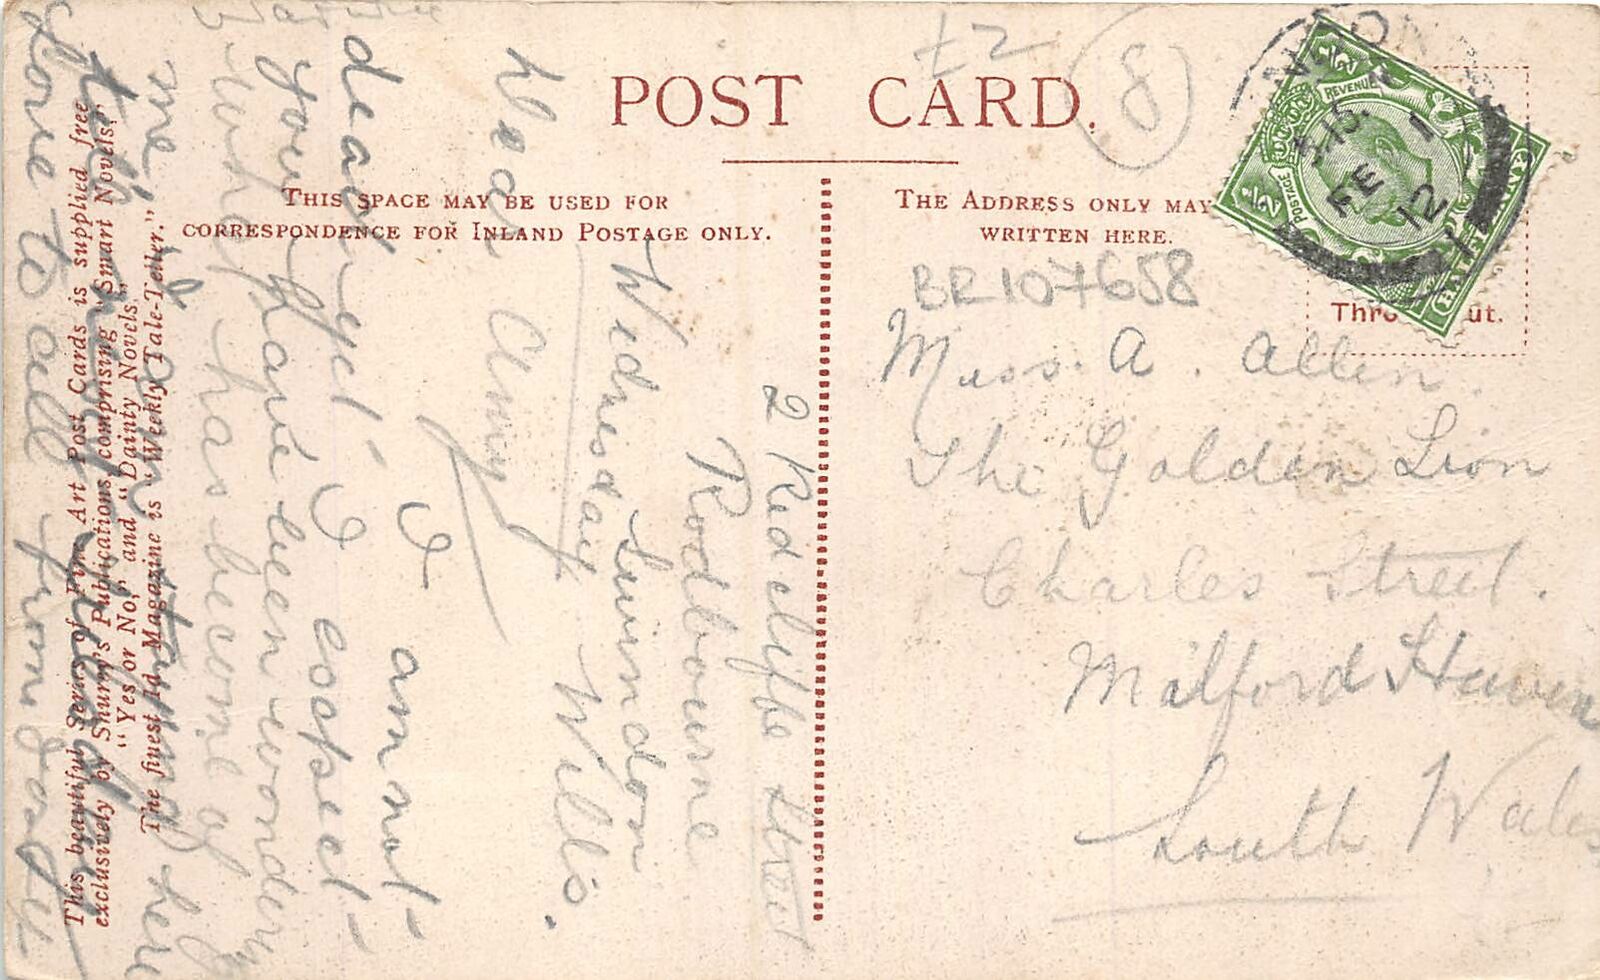 POST CARD.
£2
8
THIS SPACE MAY BE USED FOR
CORRESPONDENCE FOR INLAND POSTAGE ONLY.
THE ADDRESS ONLY MAY
WRITTEN HERE.
BR107658
REVENUE
POSTAGE
HALFPENNY
5.15
FE 1
12
Miss. A. Allen.
The Golden Lion
Charles Street.
Milford Haven
South Wales
2 Redcliffe Street
Rodbourne
Swindon
Wednesday Wilts.
Dear Amy
I am not
dead yet I expect
you have been wondering
what has become of
me
Love to all from
This beautiful Series of Fine Art Post Cards is supplied free
exclusively by Shurey's Publications, comprising "Smart Novels,"
"Yes or No," and "Dainty Novels."
The finest 1d. Magazine is "Weekly Tale-Teller."